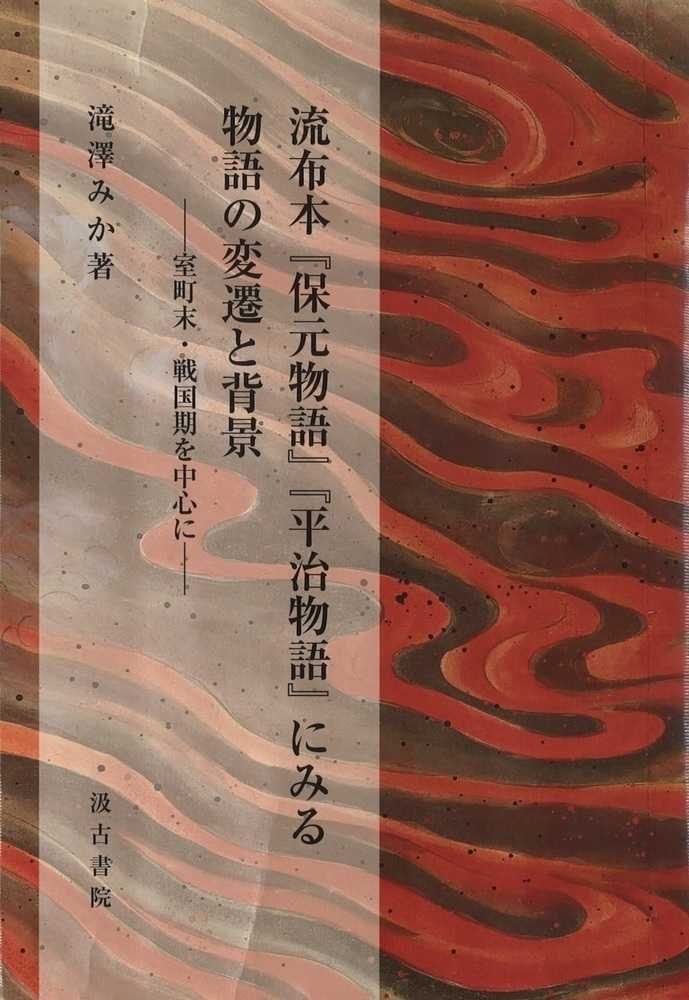 流布本『保元物語』『平治物語』にみる
物語の変遷と背景
――室町末・戦国期を中心に――
滝澤みか著
汲古書院